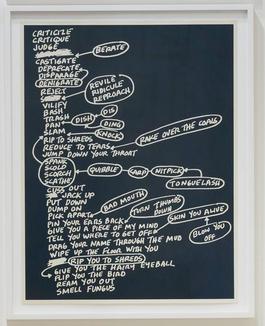 CRITICIZE
CRITIQUE
JUDGE
BERATE
CASTIGATE
DEPRECATE
DISPARAGE
DENIGRATE
REVILE
RIDICULE
REPROACH
REJECT
VILIFY
BASH
TRASH
PAN
DISH
DIS
DING
KNOCK
SLAM
RIP TO SHREDS
RAKE OVER THE COALS
REDUCE TO TEARS
JUMP DOWN YOUR THROAT
SPANK
SCOLD
SCORCH
SCATHE
QUIBBLE
CARP
NITPICK
TONGUELASH
CUSS OUT
JACK UP
PUT DOWN
BAD MOUTH
DUMP ON
TURN THUMBS
DOWN
PICK APART
SKIN YOU ALIVE
PIN YOUR EARS BACK
GIVE YOU A PIECE OF MY MIND
TELL YOU WHERE TO GET OFF
BLOW YOU
OFF
DRAG YOUR NAME THROUGH THE MUD
WIPE UP THE FLOOR WITH YOU
RIP YOU TO SHREDS
GIVE YOU THE HAIRY EYEBALL
FLIP YOU THE BIRD
REAM YOU OUT
SMELL FUNGUS